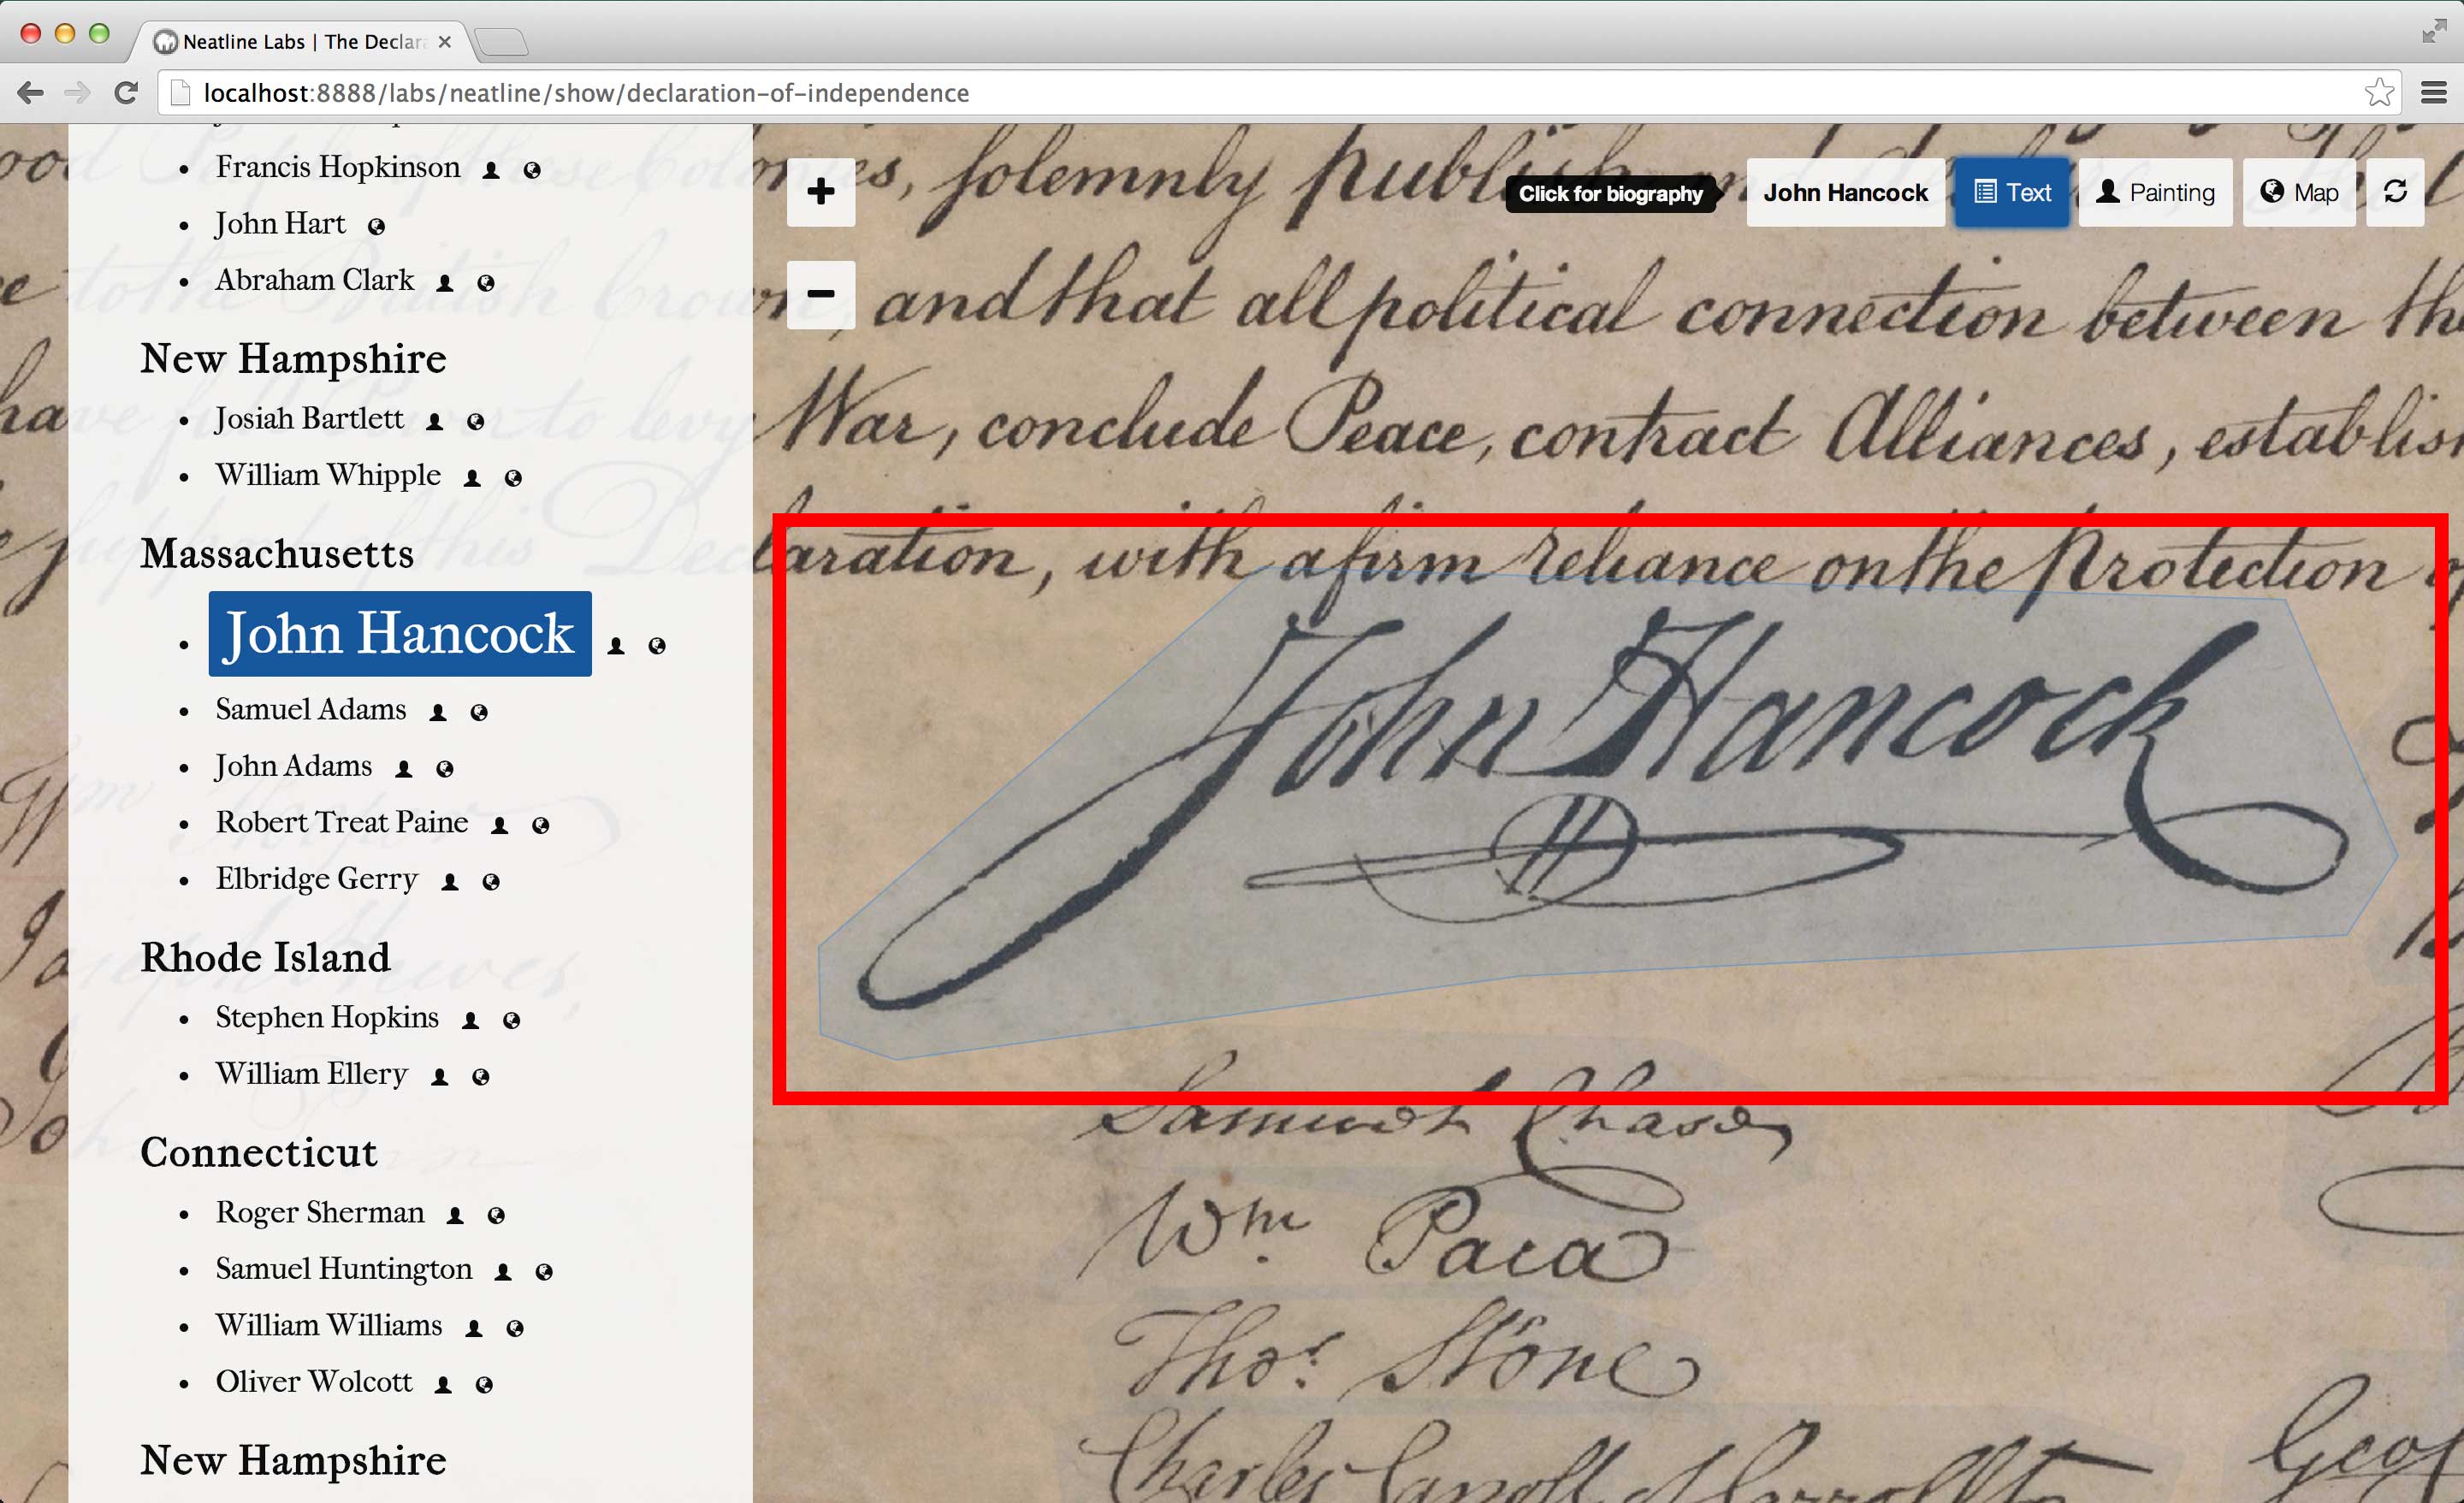 Neatline Labs | The Declar
localhost:8888/labs/neatline/show/declaration-of-independence
Francis Hopkinson
John Hart
Abraham Clark
New Hampshire
Josiah Bartlett
William Whipple
Massachusetts
John Hancock
Samuel Adams
John Adams
Robert Treat Paine
Elbridge Gerry
Rhode Island
Stephen Hopkins
William Ellery
Connecticut
Roger Sherman
Samuel Huntington
William Williams
Oliver Wolcott
New Hampshire
+
−
Click for biography
John Hancock
Text
Painting
Map
solemnly
and that all political connection between
War, conclude Peace, contract Alliances, establis
laration, with a firm reliance on the Protection
John Hancock
Samuel Chase
Wm. Paca
Thos. Stone
Charles Carroll
Geo